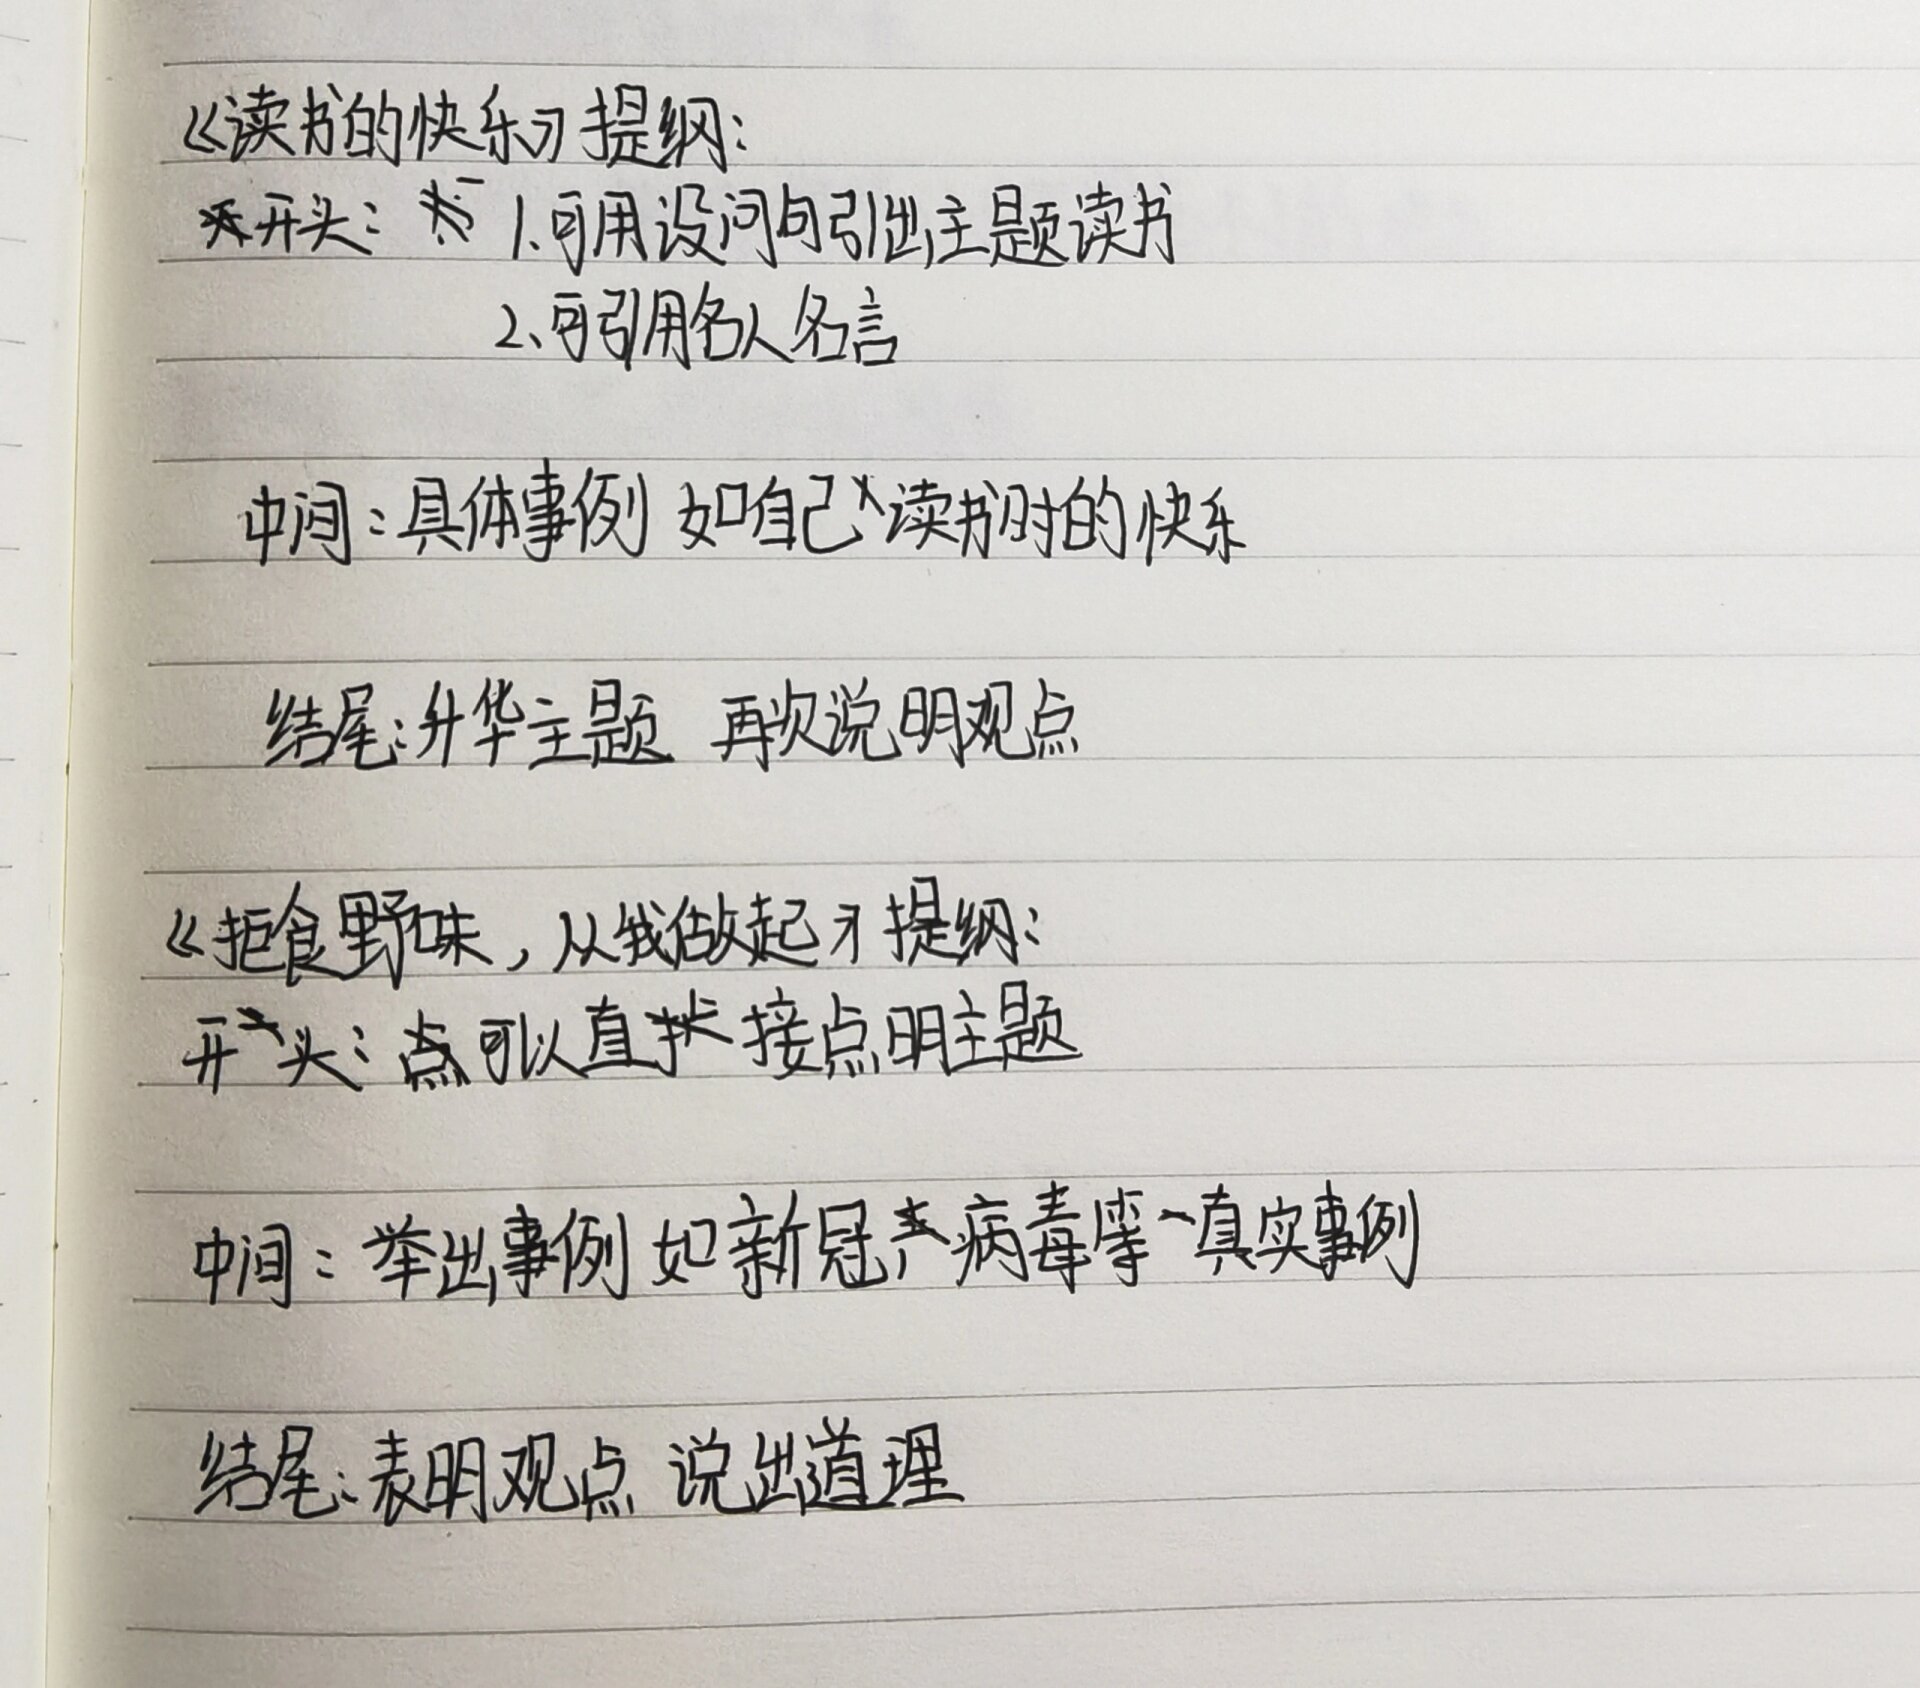 《读书的快乐》提纲:
开头: 1、可用设问句引出主题读书
2、可引用名人名言
中间:具体事例 如自己读书时的快乐
结尾:升华主题 再次说明观点
《拒食野味,从我做起》提纲:
开头:可以直接点明主题
中间:举出事例 如新冠病毒等真实事例
结尾:表明观点 说出道理